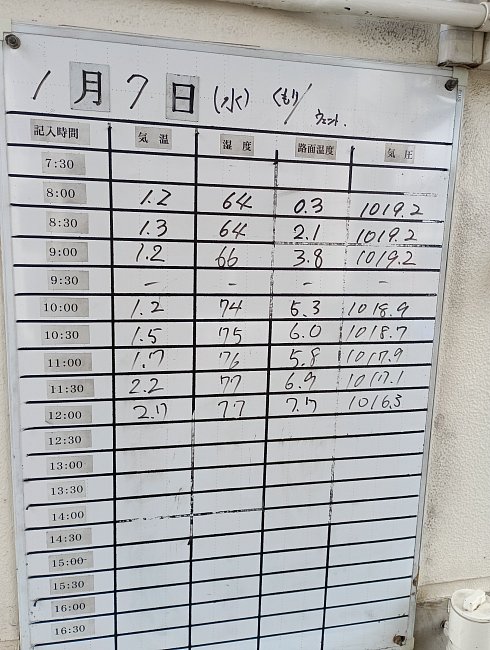 1月7日(水) くもり/ウェット.
記入時間 気温 湿度 路面温度 気圧
7:30
8:00 1.2 64 0.3 1019.2
8:30 1.3 64 2.1 1019.2
9:00 1.2 66 3.8 1019.2
9:30 - - - -
10:00 1.2 74 5.3 1018.9
10:30 1.5 75 6.0 1018.7
11:00 1.7 76 5.8 1017.9
11:30 2.2 77 6.9 1017.1
12:00 2.7 77 7.7 1016.3
12:30
13:00
13:30
14:00
14:30
15:00
15:30
16:00
16:30